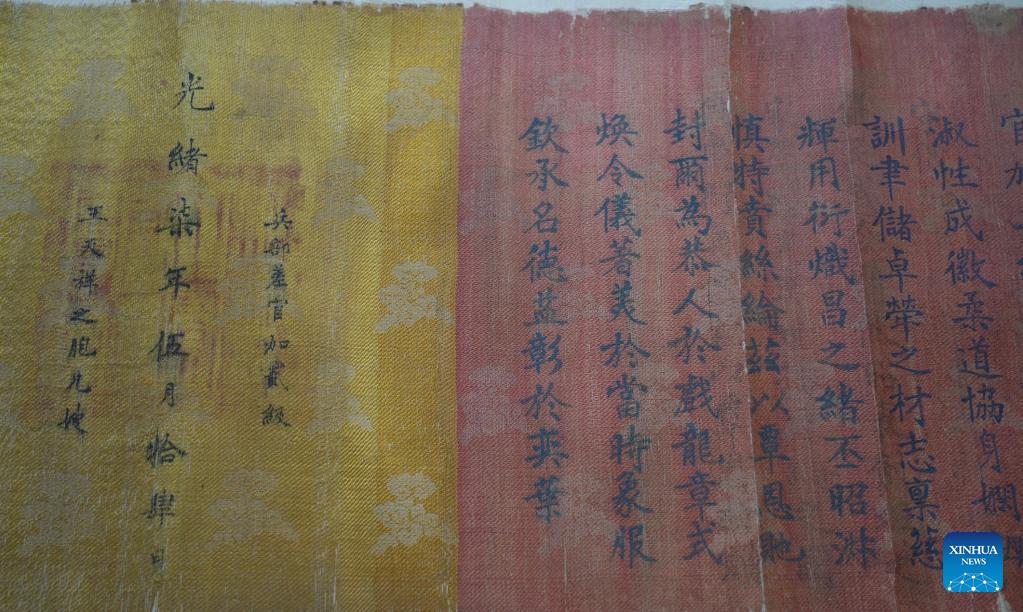 官加
淑性成徽柔道協身嫻
訓聿儲卓犖之材志禀慈
輝用衍熾昌之緒丕昭淑
慎特賁絲綸茲以覃恩貤
封爾為恭人於戲龍章式
煥令儀著美於當時象服
欽承名德益彰於奕葉
兵部差官加貳級
光緒柒年伍月拾肆日
王天祥之胞兄嫂
XINHUA
NEWS